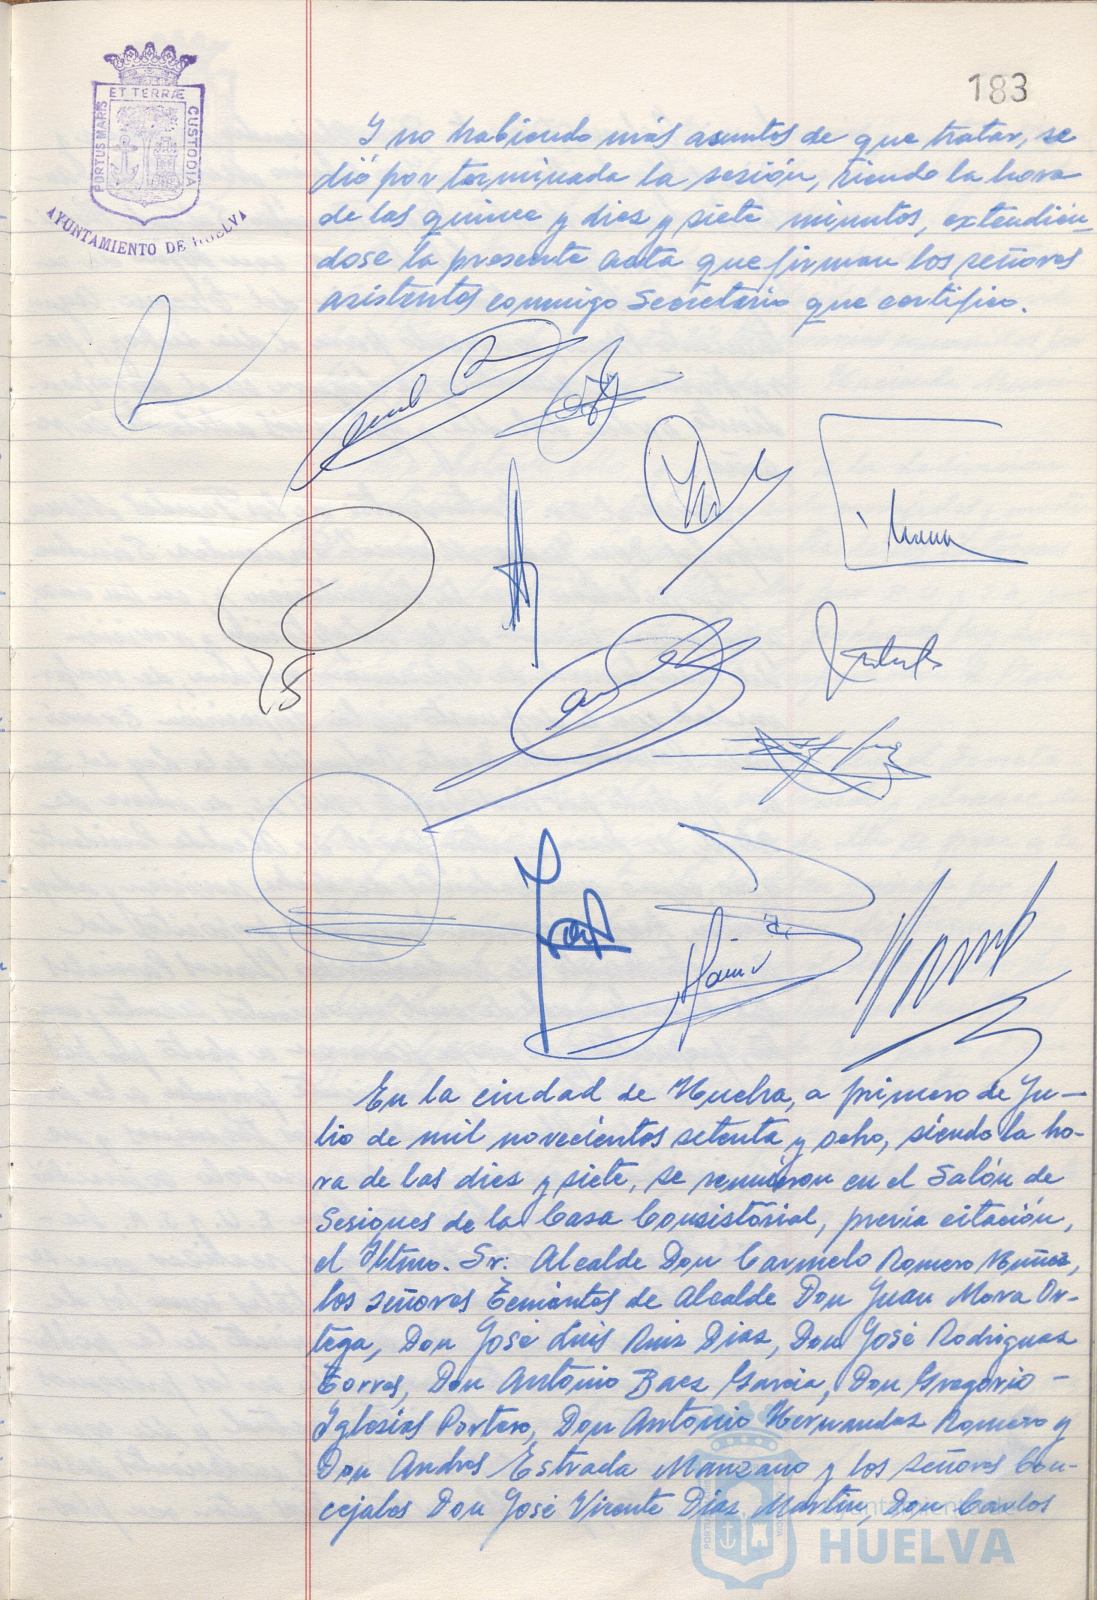 183
PORTUS MARIS ET TERRÆ CUSTODIA
AYUNTAMIENTO DE HUELVA
Y no habiendo más asuntos de que tratar, se
dió por terminada la sesión, siendo la hora
de las quince y diez y siete minutos, extendién_
dose la presente acta que firman los señores
asistentes conmigo Secretario que certifico.
En la ciudad de Huelva, a primero de Ju-
lio de mil novecientos setenta y ocho, siendo la ho-
ra de las diez y siete, se reunieron en el Salón de
Sesiones de la Casa Consistorial, previa citación,
el Iltmo. Sr. Alcalde Don Carmelo Romero Núñez,
los señores Tenientes de Alcalde Don Juan Mora Or-
tega, Don José Luis Ruiz Díaz, Don José Rodríguez
Torres, Don Antonio Baez García, Don Gregorio -
Iglesias Portero, Don Antonio Hernandez Romero y
Don Andres Estrada Manzano y los señores Con-
cejales Don José Vicente Díaz Martín, Don Carlos
HUELVA